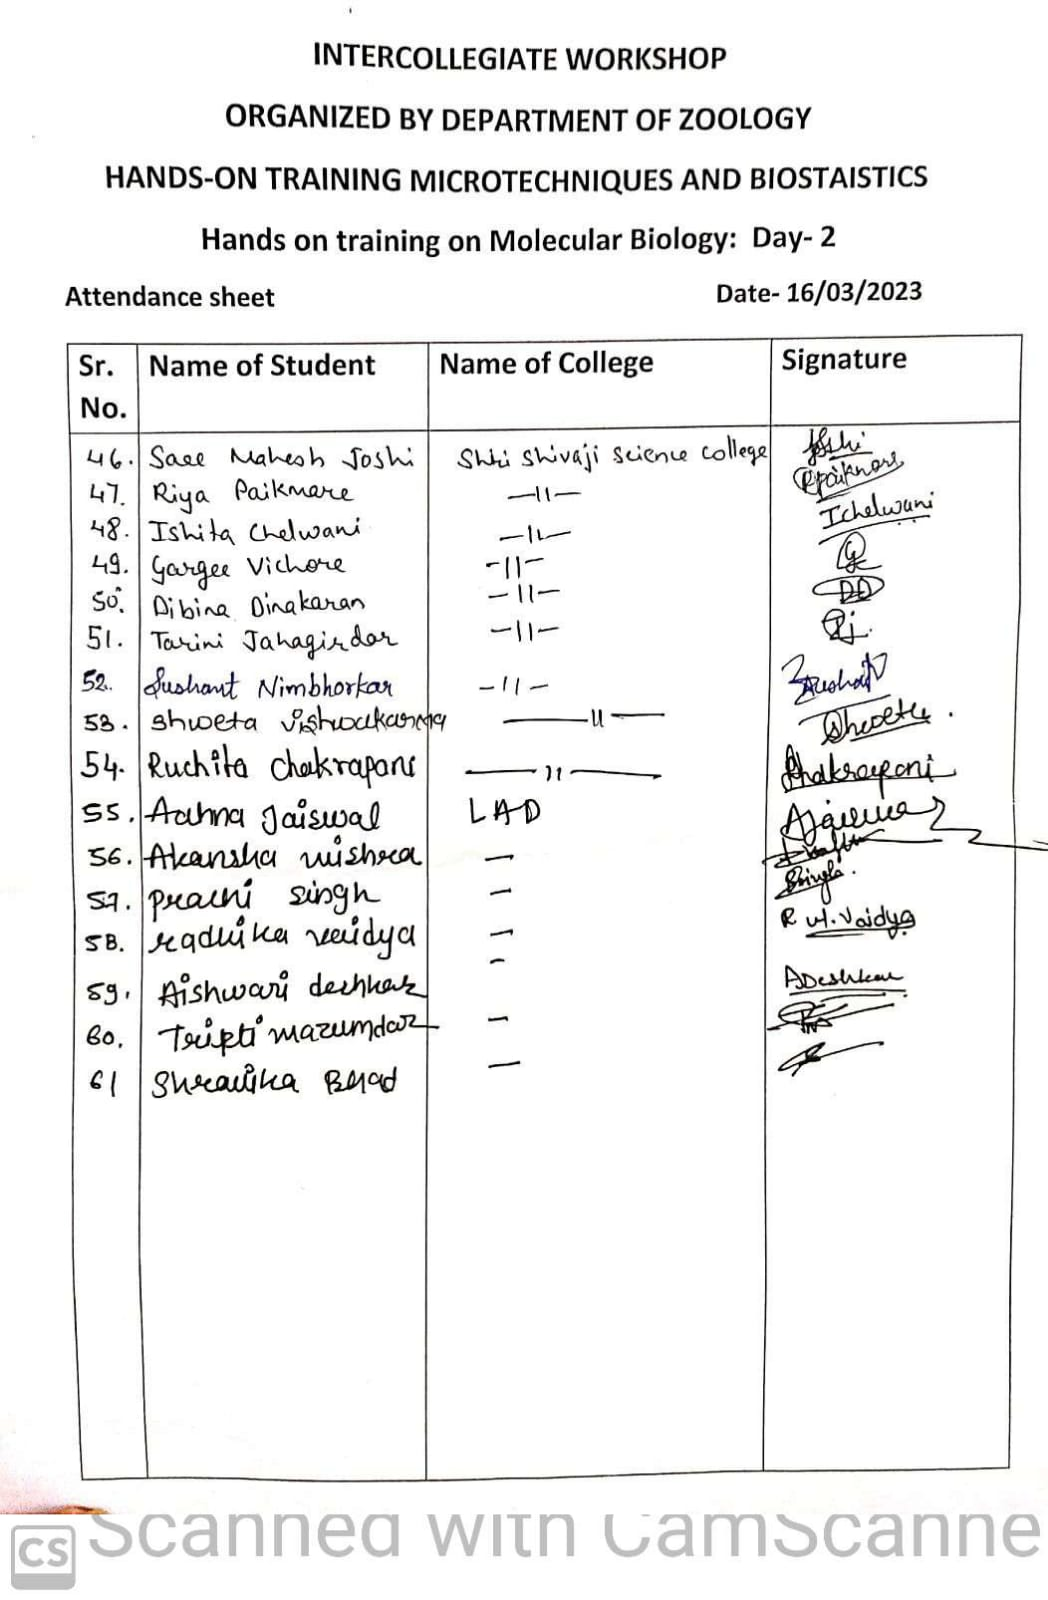 INTERCOLLEGIATE WORKSHOP
ORGANIZED BY DEPARTMENT OF ZOOLOGY
HANDS-ON TRAINING MICROTECHNIQUES AND BIOSTAISTICS
Hands on training on Molecular Biology: Day- 2
Attendance sheet Date- 16/03/2023
Sr. No. Name of Student Name of College Signature
46. Saee Mahesh Joshi Shri Shivaji Science College Joshi
47. Riya Paikmare —11— Rpaikmare
48. Ishita Chelwani —11— Ichelwani
49. Gargee Vichore —11—
50. Dibina Dinakaran —11— DD
51. Tarini Jahagirdar —11— Rj.
52. Sushant Nimbhorkar —11—
53. Shweta Vishwakarma —11— Shweta.
54. Ruchita Chakrapani —11— Chakrapani
55. Aahna Jaiswal LAD
56. Akansha Mishra —
57. Prachi Singh —
58. Radhika Vaidya — R H. Vaidya
59. Aishwari Deshkar — ADeshkar
60. Tripti Mazumdar —
61 Shravika Bhad —
CS Scanned with CamScanne